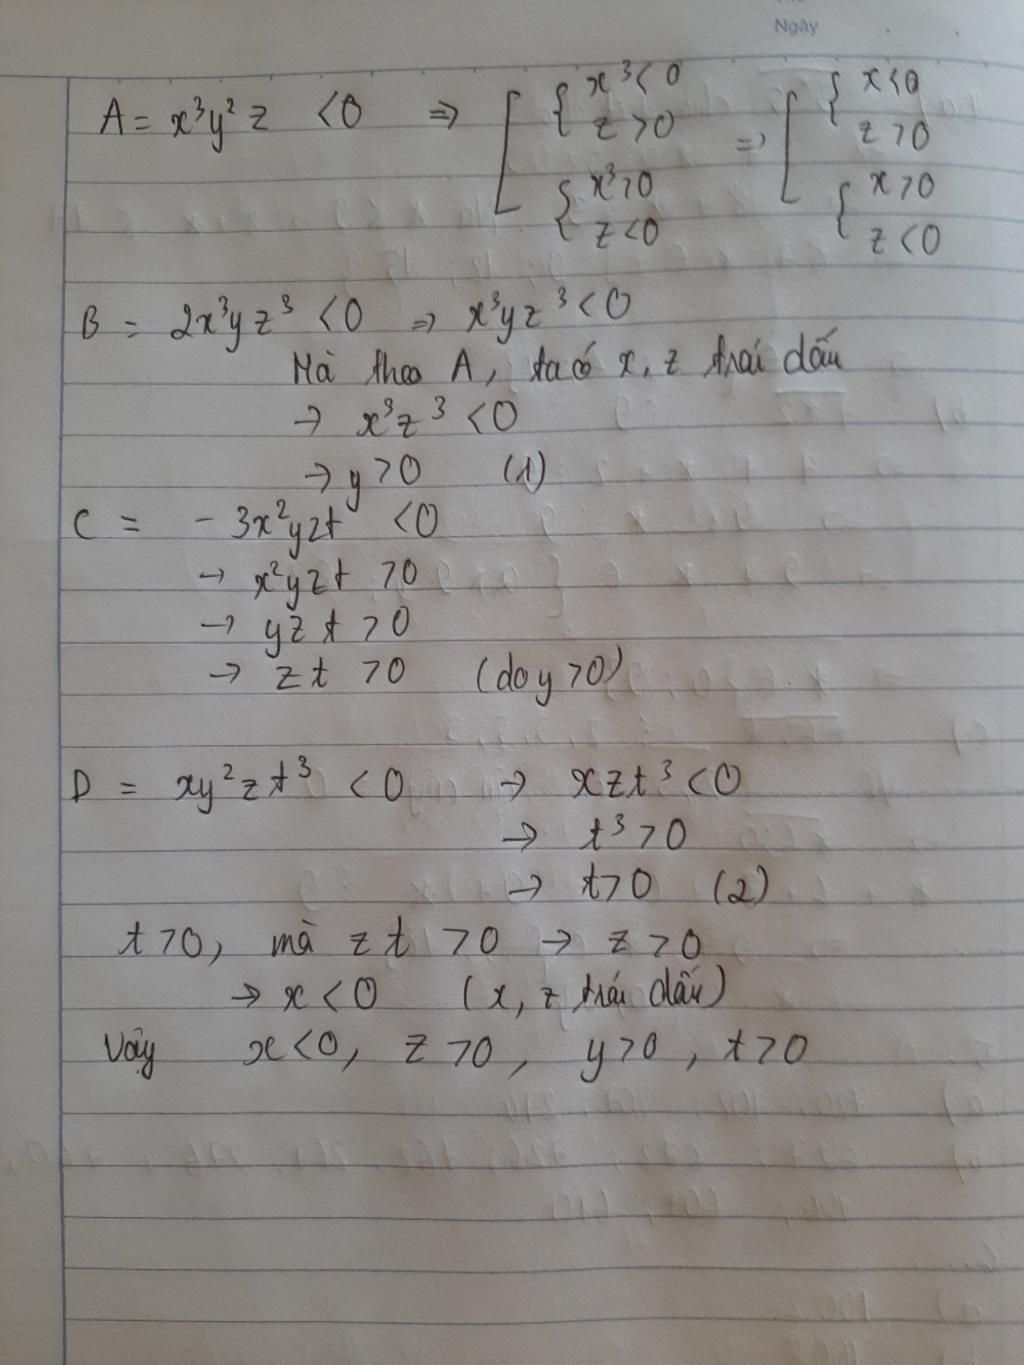 Ngày
A = x³y²z < 0 ⇒ [ { x³ < 0 ⇒ [ { x < 0
z > 0 z > 0
{ x³ > 0 { x > 0
z < 0 z < 0
B = 2x³yz³ < 0 ⇒ x³yz³ < 0
Mà theo A, ta có x, z trái dấu
→ x³z³ < 0
→ y > 0 (1)
C = - 3x²yzt < 0
→ x²yzt > 0
→ yzt > 0
→ zt > 0 (do y > 0)
D = xy²zt³ < 0 → xzt³ < 0
→ t³ > 0
→ t > 0 (2)
t > 0, mà zt > 0 → z > 0
→ x < 0 (x, z trái dấu)
Vậy x < 0, z > 0, y > 0, t > 0